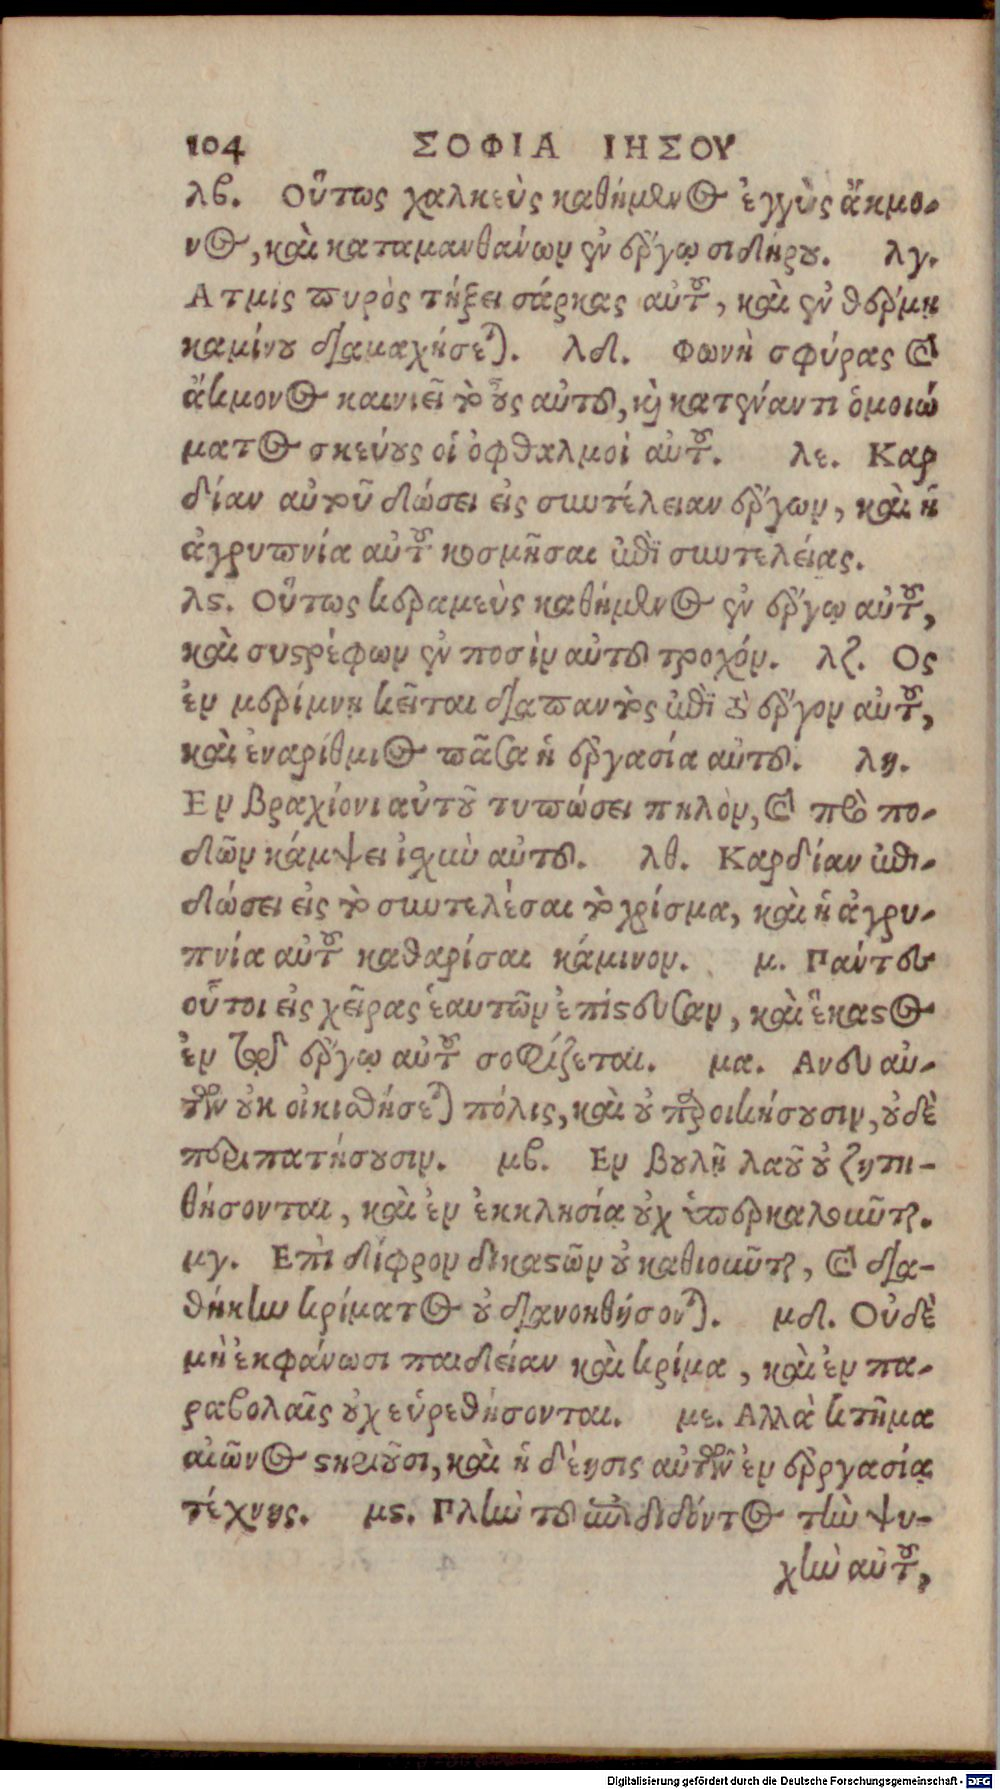 104 ΣΟΦΙΑ ΙΗΣΟΥ
λβ. Οὕτως χαλκεὺς καθήμενος ἐγγὺς ἄκμο-
νος, καὶ καταμανθάνων ἐν ἔργῳ σιδήρου. λγ.
Ατμὶς πυρὸς τήξει σάρκας αὐτοῦ, καὶ ἐν θέρμῃ
καμίνου διαμαχήσεται. λδ. Φωνὴ σφύρας καὶ
ἄκμονος καινιεῖ τὸ οὖς αὐτοῦ, καὶ κατέναντι ὁμοιώ
ματος σκεύους οἱ ὀφθαλμοὶ αὐτοῦ. λε. Καρ
δίαν αὐτοῦ δώσει εἰς συντέλειαν ἔργων, καὶ ἡ
ἀγρυπνία αὐτοῦ κοσμῆσαι ἐπὶ συντελείας.
λϛ. Οὕτως κεραμεὺς καθήμενος ἐν ἔργῳ αὐτοῦ,
καὶ συστρέφων ἐν ποσὶν αὐτοῦ τροχόν. λζ. Ος
ἐν μερίμνῃ κεῖται διαπαντὸς ἐπὶ τὸ ἔργον αὐτοῦ,
καὶ ἐναρίθμιος πᾶσα ἡ ἐργασία αὐτοῦ. λη.
Εν βραχίονι αὐτοῦ τυπώσει πηλὸν, καὶ πρὸ πο-
δῶν κάμψει ἰσχὺν αὐτοῦ. λθ. Καρδίαν ἐπι-
δώσει εἰς τὸ συντελέσαι τὸ χρίσμα, καὶ ἡ ἀγρυ-
πνία αὐτοῦ καθαρίσαι κάμινον. μ. Πάντες
οὗτοι εἰς χεῖρας ἑαυτῶν ἐπίστευσαν, καὶ ἕκαστος
ἐν τῷ ἔργῳ αὐτοῦ σοφίζεται. μα. Ανευ αὐ-
τῶν οὐκ οἰκισθήσεται πόλις, καὶ οὐ παροικήσουσιν, οὐδὲ
περιπατήσουσιν. μβ. Εν βουλῇ λαοῦ οὐ ζητη-
θήσονται, καὶ ἐν ἐκκλησίᾳ οὐχ ὑπερκαλοῦνται.
μγ. Επὶ δίφρον δικαστῶν οὐ καθιοῦνται, καὶ δια-
θήκην κρίματος οὐ διανοηθήσονται. μδ. Οὐδὲ
μὴ ἐκφάνωσι παιδείαν καὶ κρίμα, καὶ ἐν πα-
ραβολαῖς οὐχ εὑρεθήσονται. με. Αλλὰ κτῆμα
αἰῶνος στηριοῦσι, καὶ ἡ δέησις αὐτῶν ἐν ἐργασίᾳ
τέχνης. μϛ. Πλὴν τοῦ ἐπιδιδόντος τὴν ψυ-
χὴν αὐτοῦ,
Digitalisierung gefördert durch die Deutsche Forschungsgemeinschaft - DFG